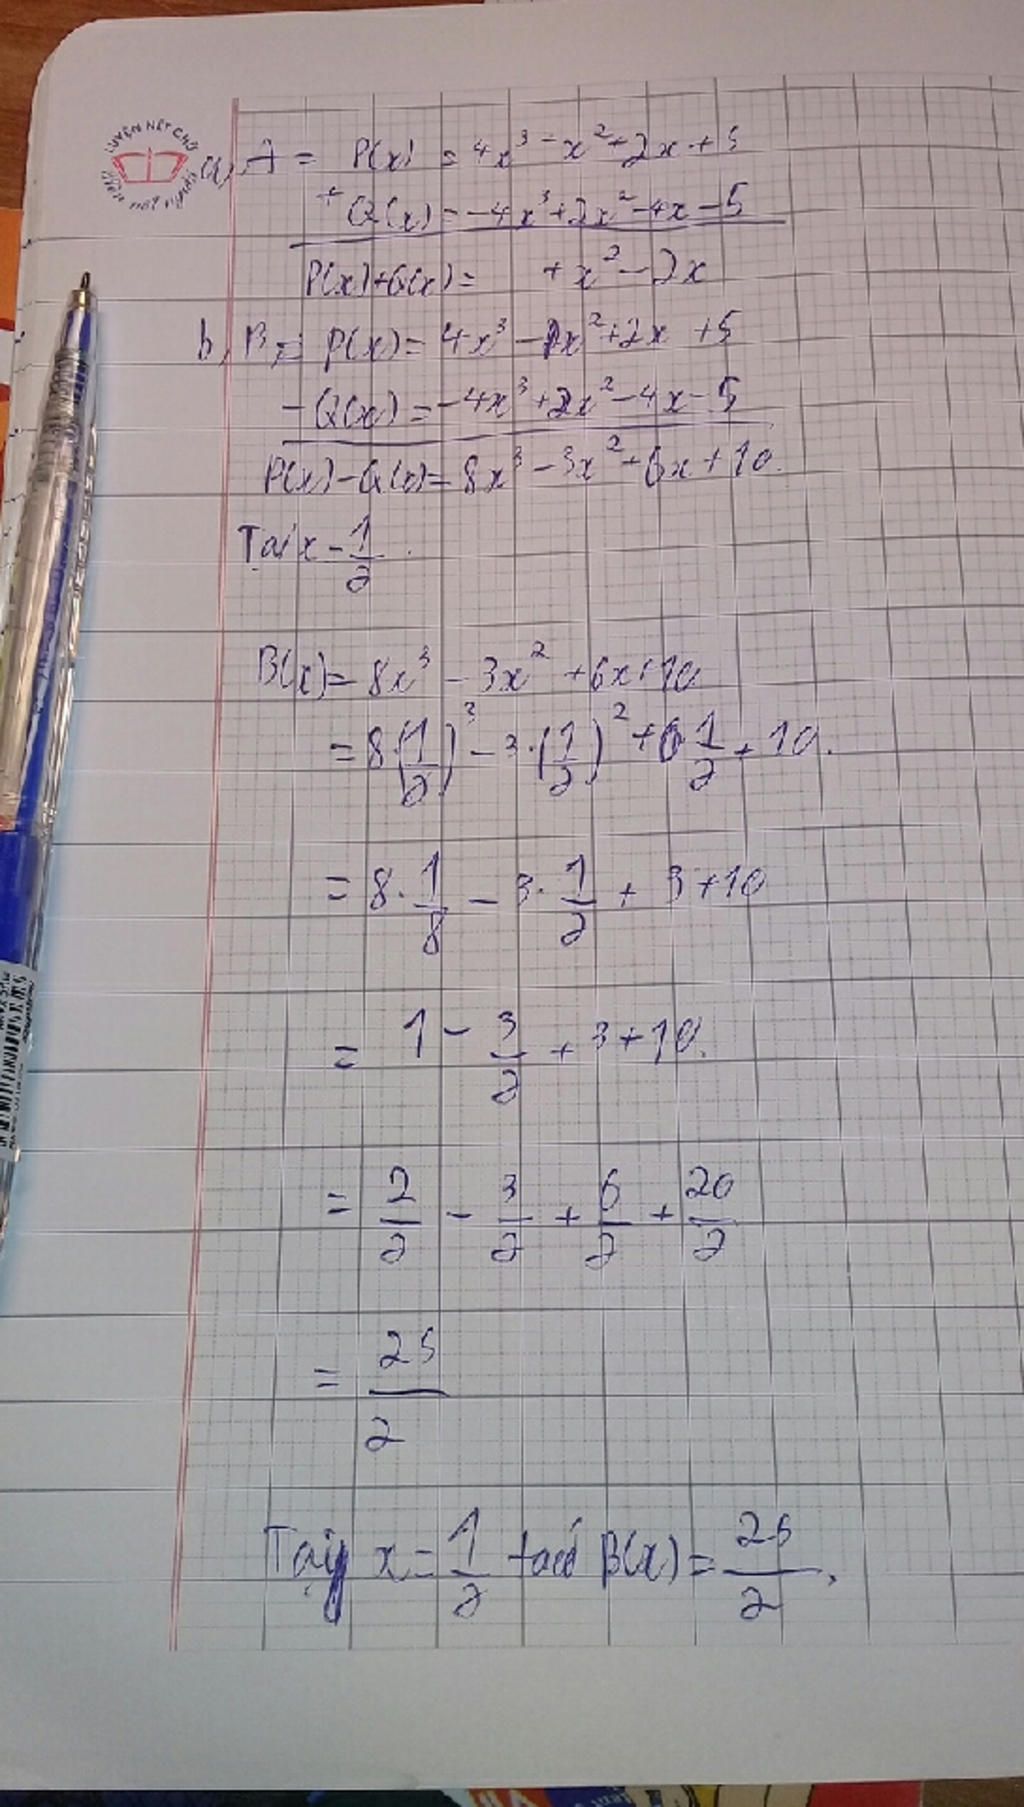 LUYỆN NÉT CHỮ
a, A = P(x) = 4x³ - x² + 2x + 5
+ Q(x) = -4x³ + 2x² - 4x - 5
P(x) + Q(x) = + x² - 2x
b, B = P(x) = 4x³ - 1x² + 2x + 5
- Q(x) = -4x³ + 2x² - 4x - 5
P(x) - Q(x) = 8x³ - 3x² + 6x + 10
Tại x = 1/2
B(x) = 8x³ - 3x² + 6x + 10
= 8·(1/2)³ - 3·(1/2)² + 6 1/2 + 10.
= 8·1/8 - 3·1/2 + 3 + 10
= 1 - 3/2 + 3 + 10.
= 2/2 - 3/2 + 6/2 + 20/2
= 25/2
Tại x = 1/2 ta có B(x) = 25/2.